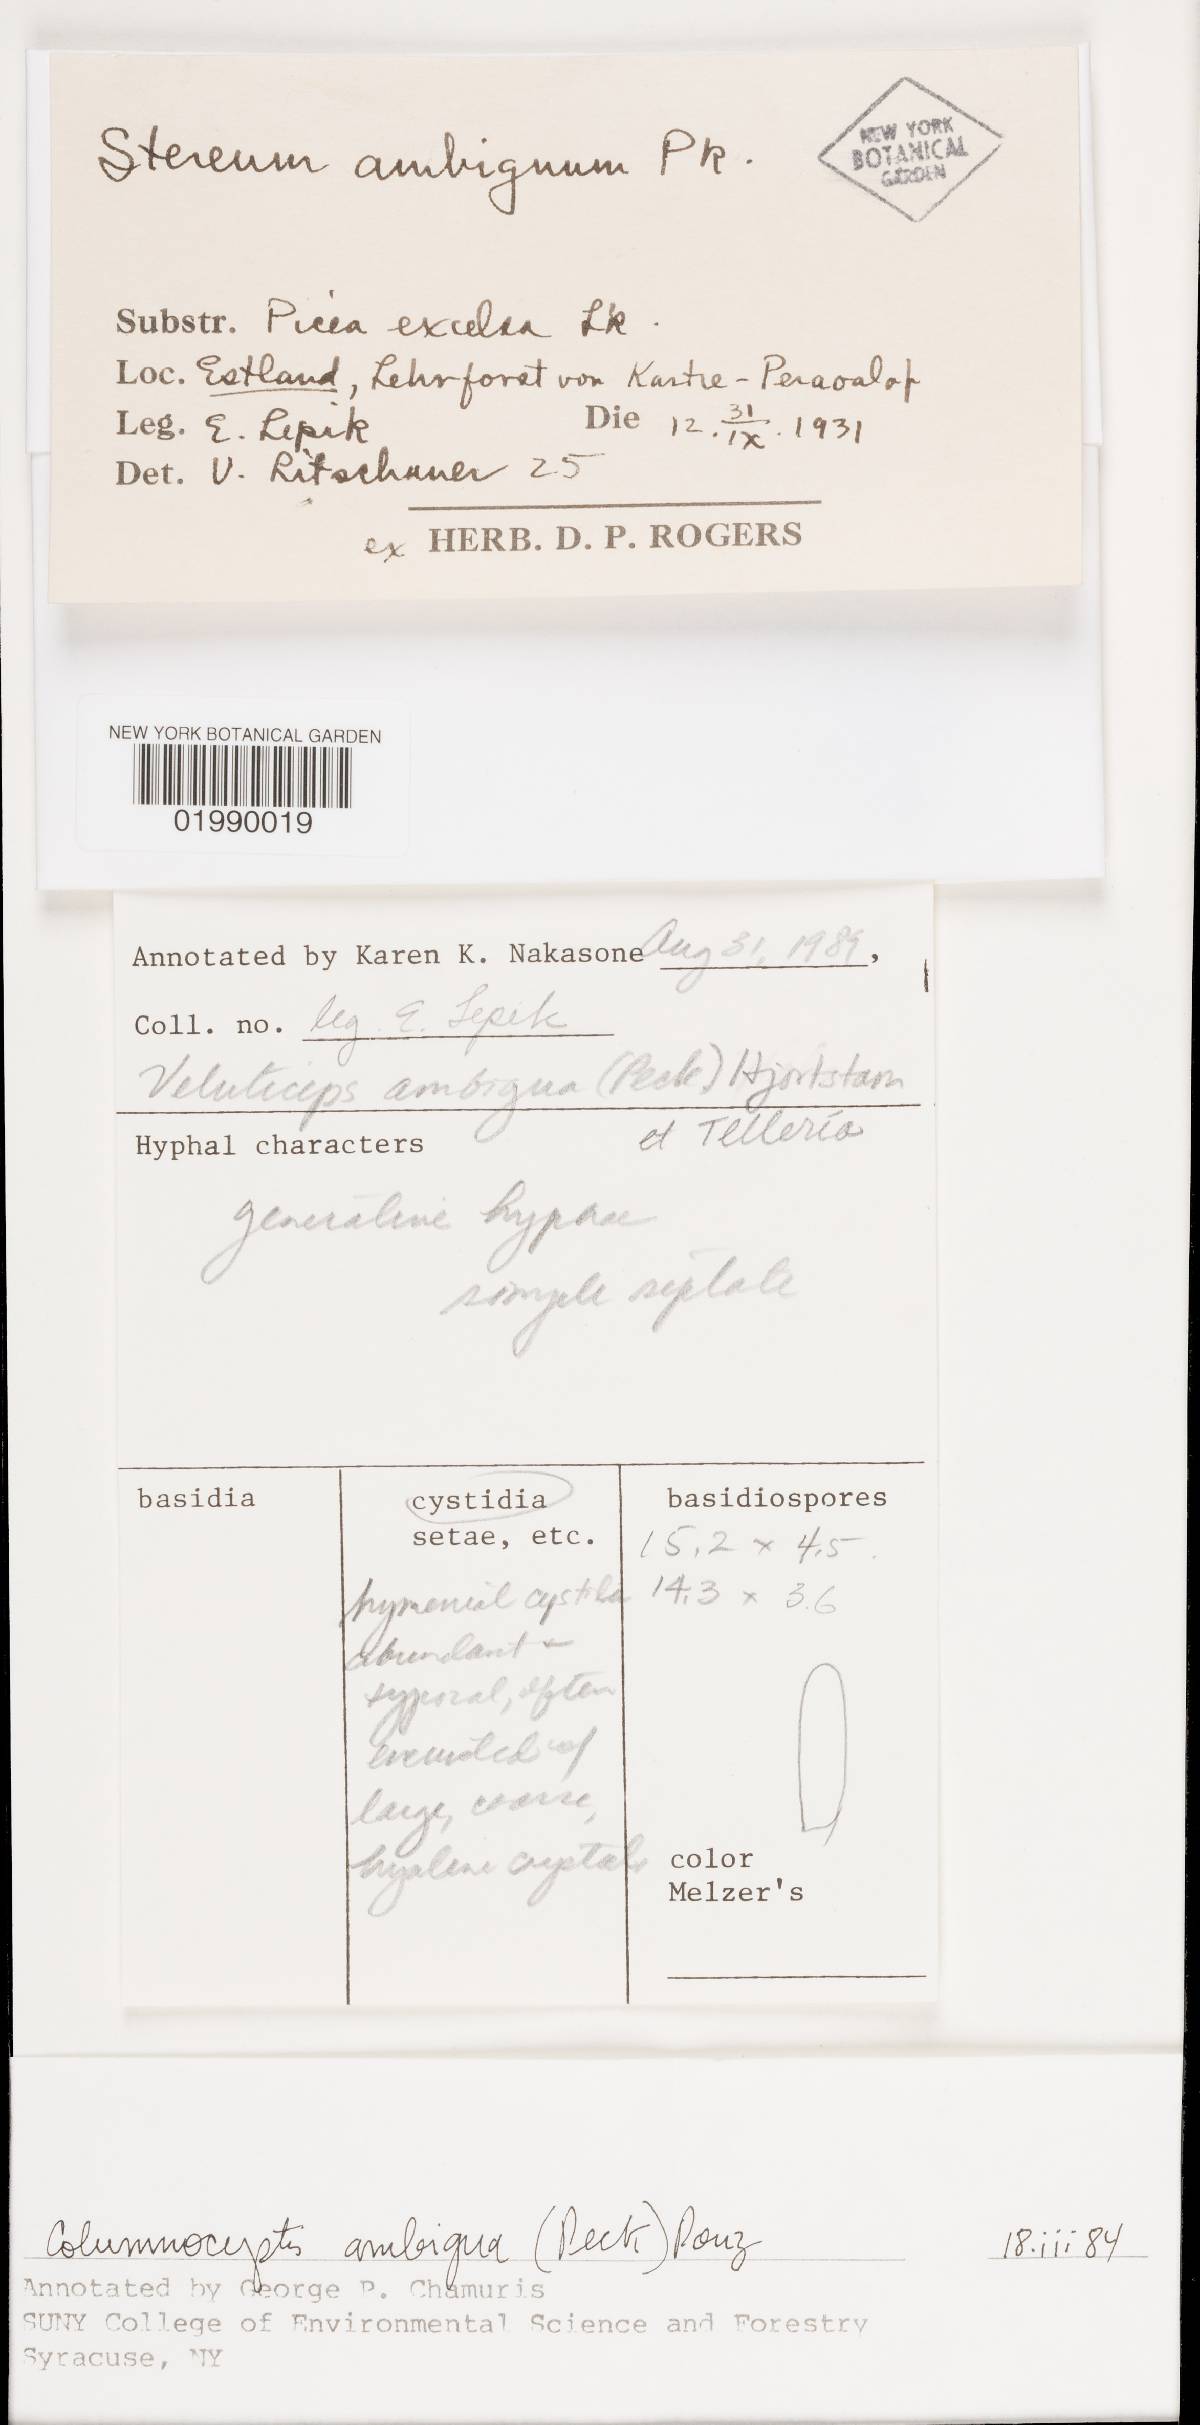 Stereum ambiguum Pk.
NEW YORK
BOTANICAL
GARDEN
Substr. Picea excelsa Lk.
Loc. Estland, Lehrforst von Kastre-Peravalaf
Leg. E. Lepik Die 12. 31/IX. 1931
Det. V. Ritschauer 25
ex HERB. D. P. ROGERS
NEW YORK BOTANICAL GARDEN
01990019
Annotated by Karen K. Nakasone Aug 31, 1989,
Coll. no. leg. E. Lepik
Veluticeps ambigua (Peck) Hjortstam
et Telleria
Hyphal characters
generative hyphae
simple septate
basidia
cystidia
setae, etc.
hymenial cystidia
abundant +
typical, often
encrusted w/
large, coarse,
hyaline crystals
basidiospores
15.2 x 4.5
14.3 x 3.6
color
Melzer's
Columnocystis ambigua (Peck) Pouz 18.iii 84
Annotated by George P. Chamuris
SUNY College of Environmental Science and Forestry
Syracuse, NY